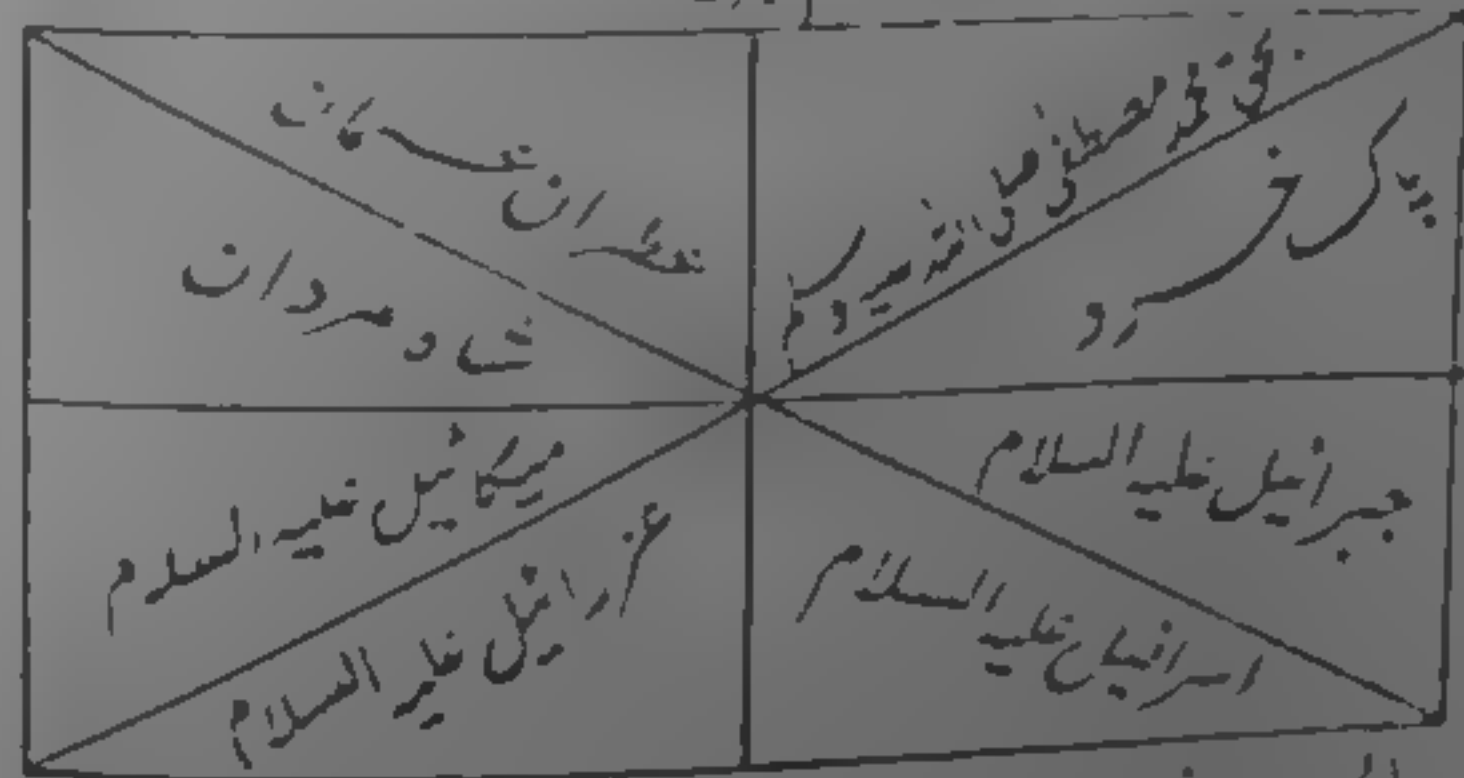 بحق محمد مصطفی صلی اللہ علیہ وسلم
پیر کرخرد
نقطران نفسکان
شاو مردان
جبرائیل علیہ السلام
اسرافیل علیہ السلام
میکائیل علیہ السلام
عزرائیل علیہ السلام